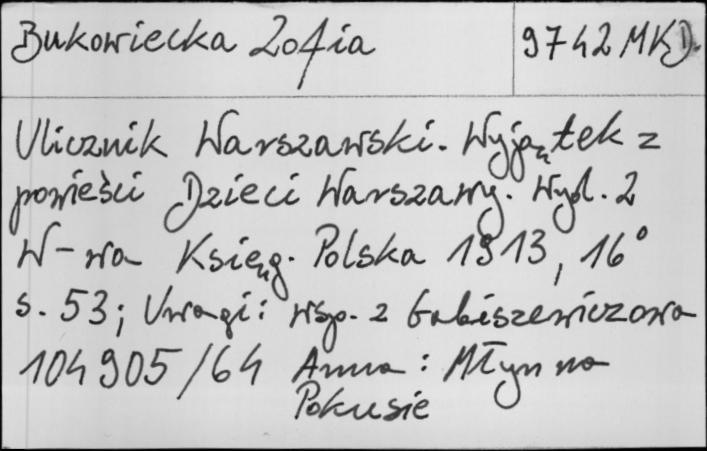 Bukowiecka Zofia
9742 MKD.
Ulicznik Warszawski. Wyjątek z
powieści Dzieci Warszawy. Wyd. 2
W-wa Księg. Polska 1913, 16°
s. 53; Uwagi: wsp. z Gabiszewiczowa
104905/64 Anna: Młyn na
Pokusie